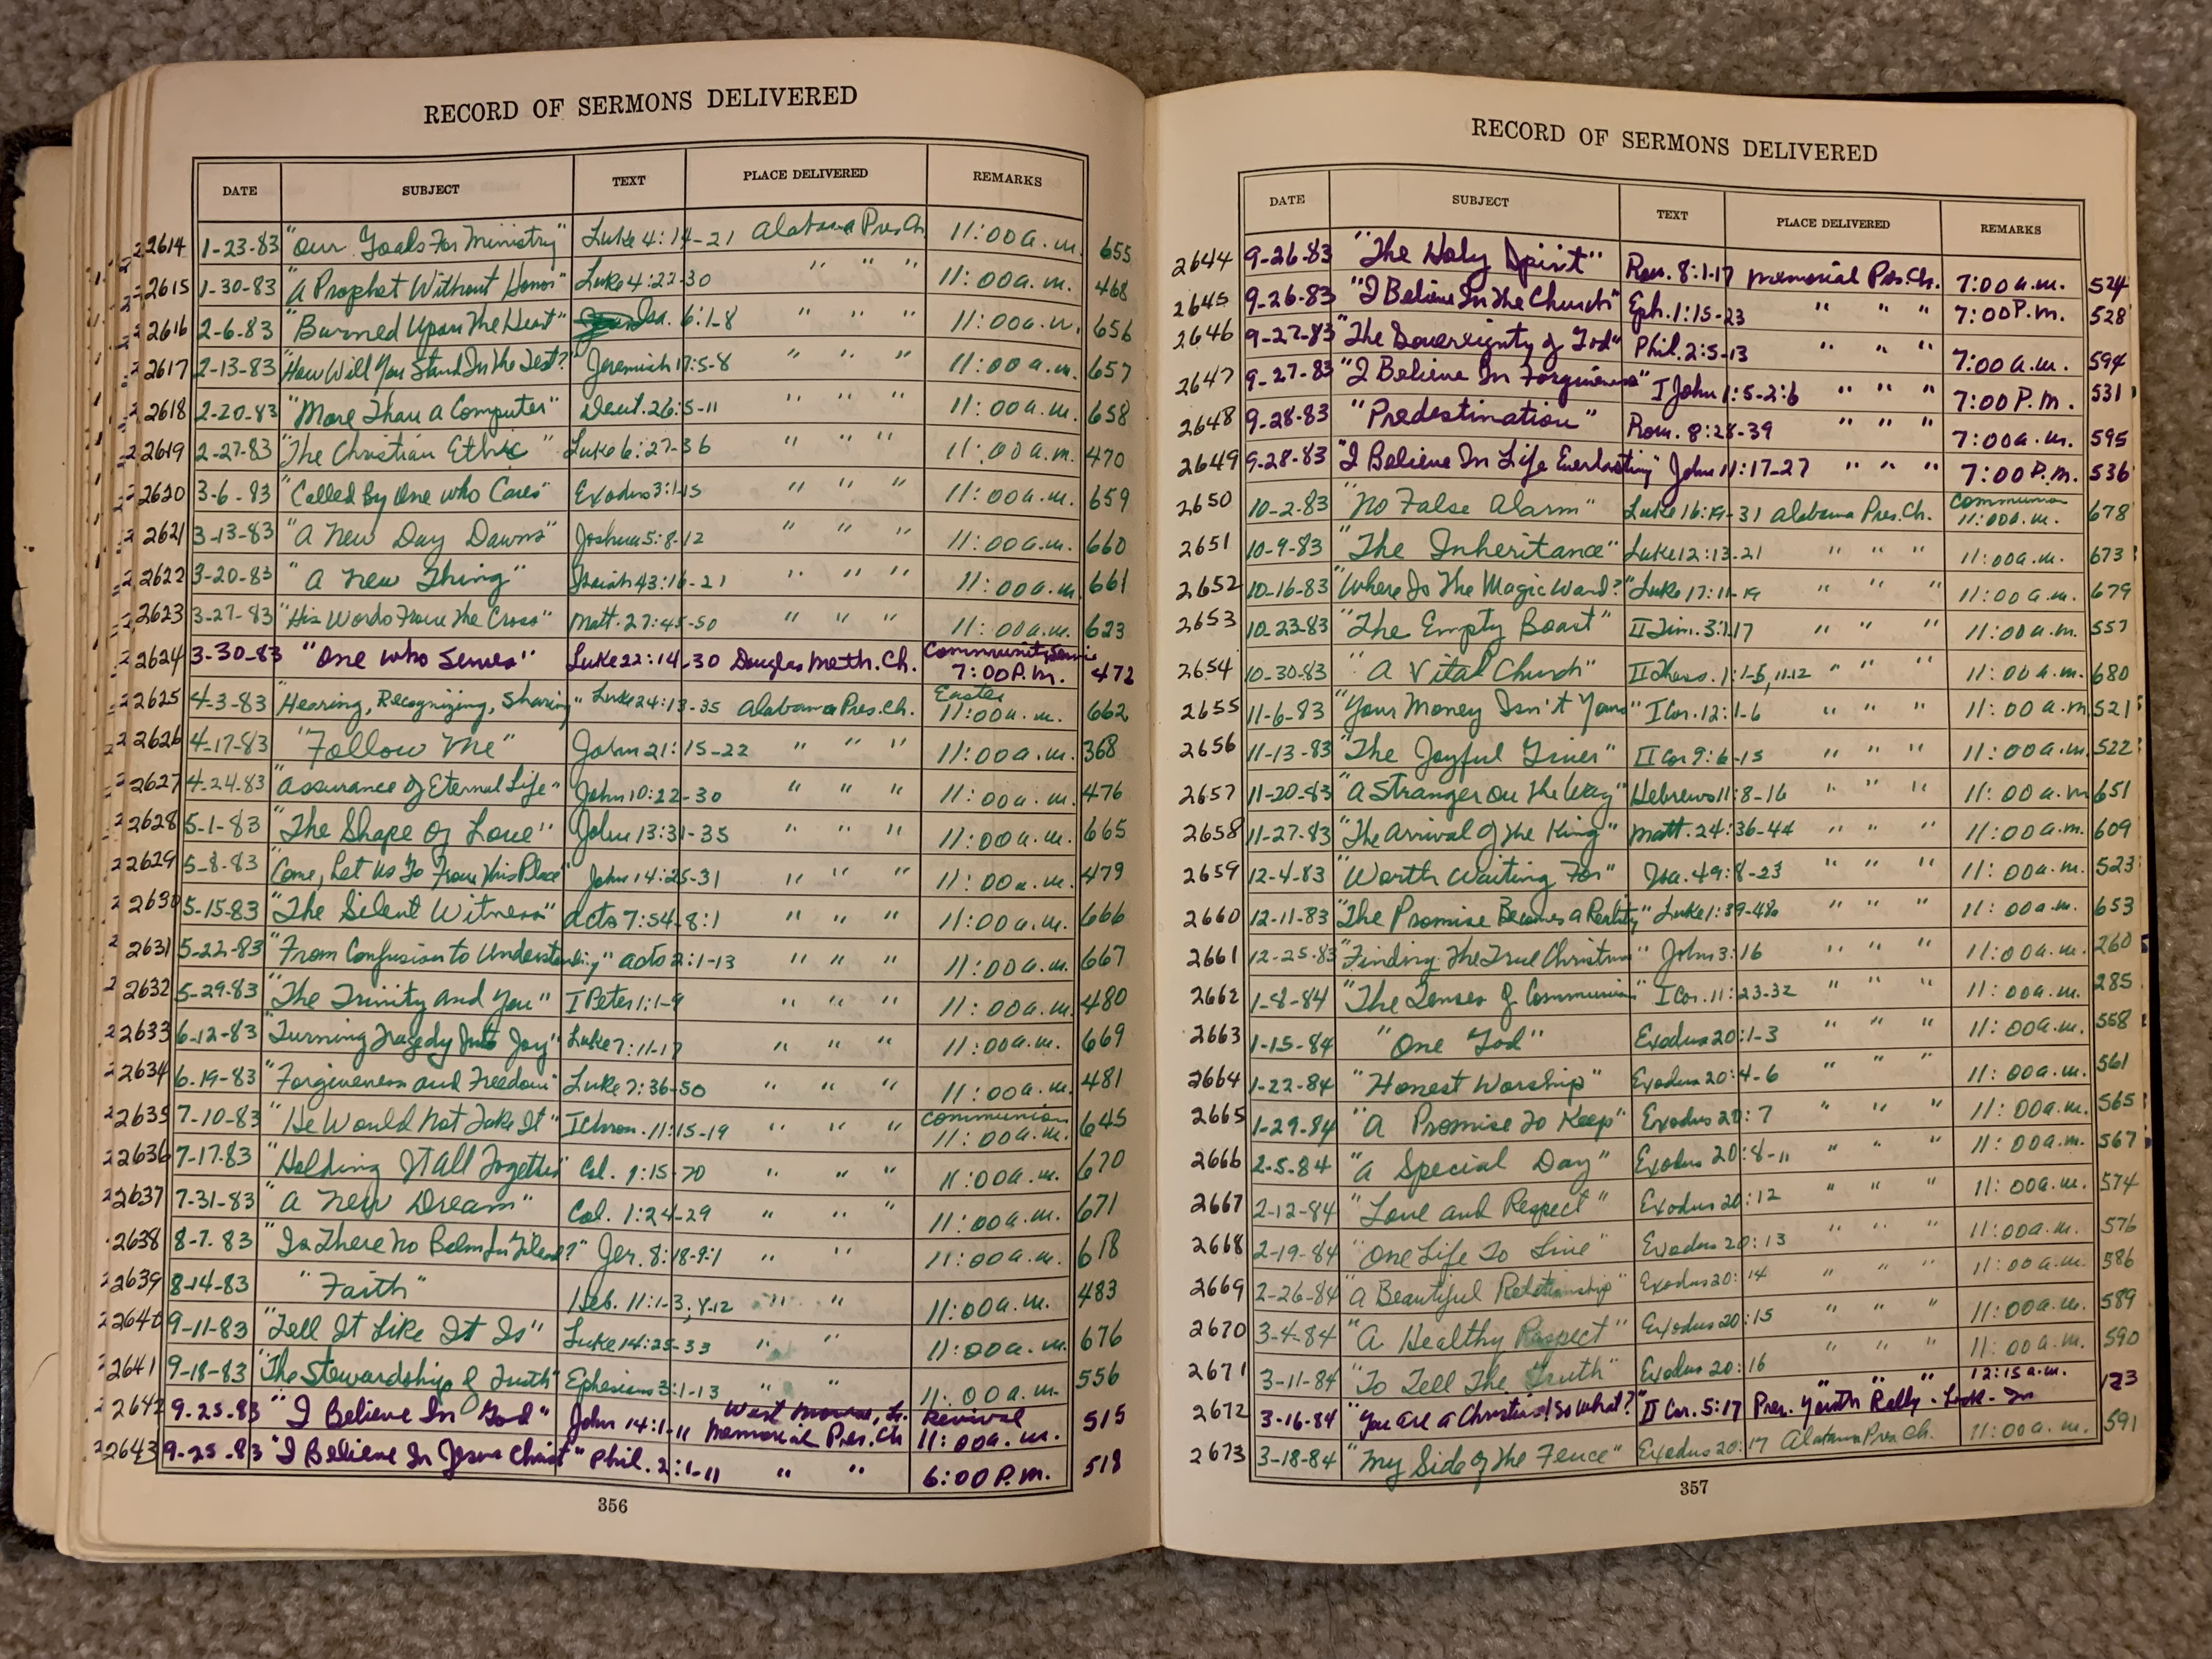 RECORD OF SERMONS DELIVERED
DATE SUBJECT TEXT PLACE DELIVERED REMARKS
2614 1-23-83 "Our Goals For Ministry" Luke 4:14-21 Alabama Pres. Ch. 11:00 a.m. 655
2615 1-30-83 "A Prophet Without Honor" Luke 4:22-30 " " " 11:00 a.m. 468
2616 2-6-83 "Burned Upon The Heart" Isa. 6:1-8 " " " 11:00 a.m. 656
2617 2-13-83 "How Will You Stand In The Test?" Jeremiah 17:5-8 " " " 11:00 a.m. 657
2618 2-20-83 "More Than a Computer" Deut. 26:5-11 " " " 11:00 a.m. 658
2619 2-27-83 "The Christian Ethic" Luke 6:27-36 " " " 11:00 a.m. 470
2620 3-6-83 "Called By One Who Cares" Exodus 3:1-15 " " " 11:00 a.m. 659
2621 3-13-83 "A New Day Dawns" Joshua 5:8-12 " " " 11:00 a.m. 660
2622 3-20-83 "A New Thing" Isaiah 43:16-21 " " " 11:00 a.m. 661
2623 3-27-83 "His Words From The Cross" Matt. 27:45-50 " " " 11:00 a.m. 623
2624 3-30-83 "One Who Serves" Luke 22:14-30 Douglas Meth. Ch. Community Service 7:00 P.M. 472
2625 4-3-83 "Hearing, Recognizing, Sharing" Luke 24:13-35 Alabama Pres. Ch. Easter 11:00 a.m. 662
2626 4-17-83 "Follow Me" John 21:15-22 " " " 11:00 a.m. 368
2627 4-24-83 "Assurance Of Eternal Life" John 10:22-30 " " " 11:00 a.m. 476
2628 5-1-83 "The Shape Of Love" John 13:31-35 " " " 11:00 a.m. 665
2629 5-8-83 "Come, Let Us Go From This Place" John 14:25-31 " " " 11:00 a.m. 479
2630 5-15-83 "The Silent Witness" Acts 7:54-8:1 " " " 11:00 a.m. 666
2631 5-22-83 "From Confusion to Understanding" Acts 2:1-13 " " " 11:00 a.m. 667
2632 5-29-83 "The Trinity and You" I Peter 1:1-9 " " " 11:00 a.m. 480
2633 6-12-83 "Turning Tragedy Into Joy" Luke 7:11-17 " " " 11:00 a.m. 669
2634 6-19-83 "Forgiveness and Freedom" Luke 7:36-50 " " " 11:00 a.m. 481
2635 7-10-83 "He Would Not Take It" I Chron. 11:15-19 " " " Communion 11:00 a.m. 645
2636 7-17-83 "Holding It All Together" Col. 1:15-20 " " " 11:00 a.m. 670
2637 7-31-83 "A New Dream" Col. 1:24-29 " " " 11:00 a.m. 671
2638 8-7-83 "Is There No Balm In Gilead?" Jer. 8:18-9:1 " " 11:00 a.m. 618
2639 8-14-83 "Faith" Heb. 11:1-3, 8-12 " " 11:00 a.m. 483
2640 9-11-83 "Tell It Like It Is" Luke 14:25-33 " " 11:00 a.m. 676
2641 9-18-83 "The Stewardship Of Truth" Ephesians 3:1-13 " " 11:00 a.m. 556
2642 9-25-83 "I Believe In God" John 14:1-11 West Monroe, La. Memorial Pres. Ch Revival 11:00 a.m. 515
2643 9-25-83 "I Believe In Jesus Christ" Phil. 2:1-11 " " 6:00 P.M. 518
356
RECORD OF SERMONS DELIVERED
DATE SUBJECT TEXT PLACE DELIVERED REMARKS
2644 9-26-83 "The Holy Spirit" Rom. 8:1-17 Memorial Pres. Ch. 7:00 a.m. 524
2645 9-26-83 "I Believe In The Church" Eph. 1:15-23 " " " 7:00 P.M. 528
2646 9-27-83 "The Sovereignty of God" Phil. 2:5-13 " " " 7:00 a.m. 594
2647 9-27-83 "I Believe In Forgiveness" I John 1:5-2:6 " " " 7:00 P.M. 531
2648 9-28-83 "Predestination" Rom. 8:28-39 " " " 7:00 a.m. 595
2649 9-28-83 "I Believe In Life Everlasting" John 11:17-27 " " " 7:00 P.M. 536
2650 10-2-83 "No False Alarm" Luke 16:19-31 Alabama Pres. Ch. Communion 11:00 a.m. 678
2651 10-9-83 "The Inheritance" Luke 12:13-21 " " " 11:00 a.m. 673
2652 10-16-83 "Where Is The Magic Word?" Luke 17:11-19 " " " 11:00 a.m. 679
2653 10-23-83 "The Empty Boast" II Tim. 3:1-17 " " " 11:00 a.m. 557
2654 10-30-83 "A Vital Church" II Thess. 1:1-5, 11-12 " " " 11:00 a.m. 680
2655 11-6-83 "Your Money Isn't Yours" I Cor. 12:1-6 " " " 11:00 a.m. 521
2656 11-13-83 "The Joyful Giver" II Cor 9:6-15 " " " 11:00 a.m. 522
2657 11-20-83 "A Stranger On The Way" Hebrews 11:8-16 " " " 11:00 a.m. 651
2658 11-27-83 "The Arrival Of The King" Matt. 24:36-44 " " " 11:00 a.m. 609
2659 12-4-83 "Worth Waiting For" Isa. 49:8-23 " " " 11:00 a.m. 523
2660 12-11-83 "The Promise Becomes a Reality" Luke 1:39-48a " " " 11:00 a.m. 653
2661 12-25-83 "Finding The True Christmas" John 3:16 " " " 11:00 a.m. 260
2662 1-8-84 "The Tenses Of Communion" I Cor. 11:23-32 " " " 11:00 a.m. 285
2663 1-15-84 "One God" Exodus 20:1-3 " " " 11:00 a.m. 558
2664 1-22-84 "Honest Worship" Exodus 20:4-6 " " " 11:00 a.m. 561
2665 1-29-84 "A Promise To Keep" Exodus 20:7 " " " 11:00 a.m. 565
2666 2-5-84 "A Special Day" Exodus 20:8-11 " " " 11:00 a.m. 567
2667 2-12-84 "Love and Respect" Exodus 20:12 " " " 11:00 a.m. 574
2668 2-19-84 "One Life To Live" Exodus 20:13 " " " 11:00 a.m. 576
2669 2-26-84 "A Beautiful Relationship" Exodus 20:14 " " " 11:00 a.m. 586
2670 3-4-84 "A Healthy Respect" Exodus 20:15 " " " 11:00 a.m. 589
2671 3-11-84 "To Tell The Truth" Exodus 20:16 " " " 11:00 a.m. 590
2672 3-16-84 "You Are a Christian! So What?" II Cor. 5:17 Pres. Youth Rally - Lock-In 12:15 a.m. 123
2673 3-18-84 "My Side Of The Fence" Exodus 20:17 Alabama Pres. Ch. 11:00 a.m. 591
357